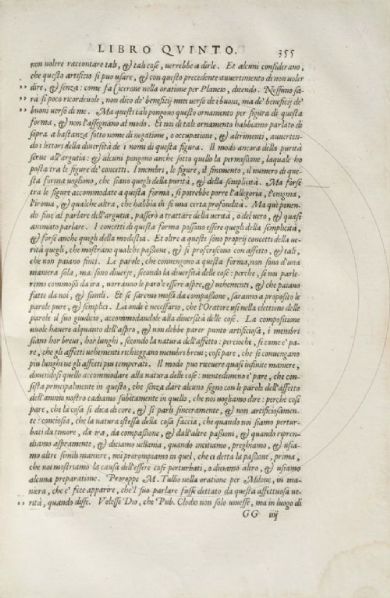 LIBRO QVINTO. 355
non voltre raccontare tali, & tali cose, verrebbe a dirle. Et alcuni considerano,
che questo artificio si puo usare, & con questo precedente avvertimento di non voler
dire, & senza: come fa Cicerone nella oratione per Plancio, dicendo. Nessuno sa-
rà si poco ricordevole, non dico de' beneficij miei verso de i buoni, ma de' beneficij de'
buoni verso di me. Ma questi tali pongono questo ornamento per figura di questa
forma, & non l'assegnano al modo. Et noi de tale ornamento habbiamo parlato di
sopra a bastanza sotto nome di negatione, occupatione, & altrimenti, avverten-
do i lettori della diversità de i nomi di questa figura. Il modo ancora della purità
serve all'argutia; & alcuni pongono anche sotto quello la permissione, laquale ho
posta tra le figure de' concetti. I membri, le figure, il finimento, il numero di que-
sta forma vogliono, che siano quegli della purità, & della simplicità. Ma forse
tra le figure accommodate a questa forma, si potrebbe porre l'allegoria,
& qualche altra, che habbia di se una certa profondità. Ma qui ponen-
do fine al parlare dell'argutia, passerò a trattare della verità, o del vero, & quasi
animato parlare. I concetti di questa forma possono essere quegli della simplicità,
& forse anche quegli della modestia. Et oltre a questi sono proprij concetti della ve-
rità quegli, che mostrano qualche passione, & si proferiscono con affetto, & tali,
che non paiano finti. Le parole, che convengono a questa forma, non sono d'una
maniera sola, ma sono diverse, secondo la diversità delle cose: perche, se noi parle-
remo commossi da ira, vorranno le parole essere aspre, & vehementi, & che paiano
fatte da noi, & simili. Et se saremo mossi da compassione, saranno a proposito le
parole pure, & semplici. La onde è necessario, che l'Oratore usi nella elettione delle
parole il suo giudicio, accommodandole alla diversità delle cose. La compositione
vuole havere alquanto dell'aspro, & non debbe parer punto artificiosa, i membri
siano hor brevi, hor lunghi, secondo la natura dell'affetto: percioche, si come è pa-
re, che gli affetti vehementi richieggano membri brevi; così pare, che si convengano
piu lunghi ne gli affetti piu temperati. Il modo puo ricevere quasi infinite maniere,
dovendosi quelle accommodare alla natura delle cose: nientedimeno e' pare, che con-
sista principalmente in questo, che senza dare alcuno segno con le parole dell'affetto
dell'animo nostro cadiamo subitamente in quello, che noi vogliamo dire: perche così
pare, che la cosa si dica di core, & si parli sinceramente, & non artificiosamen-
te: conciosia, che la natura stessa della cosa faccia, che quando noi siamo pertur-
bati da timore, da ira, da compassione, & dall'altre passioni, & quando ripren-
diamo aspramente, & diciamo villania, quando incitiamo, preghiamo, & usia-
mo altre simili maniere, noi prorompiamo in quel, che ci detta la passione, prima,
che noi mostriamo la causa dell'essere così perturbati, o diciamo altro, & usiamo
alcuna preparatione. Proroppe M. Tullio nella oratione per Milone, in ma-
niera, che e' fece apparire, che'l suo parlare fusse dettato da questa affettuosa ve-
rità, quando disse. Volesse Dio, che Pub. Clodio non solo vivesse, ma in luogo di
GG iiij